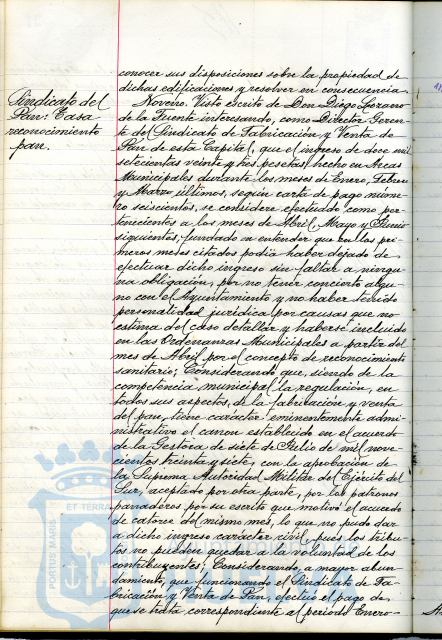 Sindicato del
Pan: Tasa
reconocimiento
pan.
conocer sus disposiciones sobre la propiedad de
dichas edificaciones y resolver en consecuencia.
Noveno. Visto escrito de Don Diego Lozano
de la Fuente interesando, como Director Geren-
te del Sindicato de Fabricación y Venta de
Pan de esta Capital, que el ingreso de doce mil
setecientas veinte y tres pesetas, hecho en Arcas
Municipales durante los meses de Enero, Febrero
y Marzo últimos, según carta de pago núme-
ro seiscientos, se considere efectuado como per-
tenecientes a los meses de Abril, Mayo y Junio
siguientes, fundado en entender que en los pri-
meros meses citados podía haber dejado de
efectuar dicho ingreso sin faltar a ningu-
na obligación, por no tener concierto algu-
no con el Ayuntamiento y no haber tenido
personalidad jurídica por causas que no
estima del caso detallar y haberse incluido
en las Ordenanzas Municipales a partir del
mes de Abril por el concepto de reconocimiento
sanitario; Considerando que, siendo de la
competencia municipal la regulación, en
todos sus aspectos, de la fabricación y venta
del pan, tiene carácter eminentemente admi-
nistrativo el canon establecido en el acuerdo
de la Gestora de siete de Julio de mil nove-
cientos treinta y siete, con la aprobación de
la Suprema Autoridad Militar del Ejército del
Sur, aceptado por otra parte, por los patronos
panaderos por su escrito que motivó el acuerdo
de catorce del mismo mes, lo que no pudo dar
a dicho ingreso carácter civil, pues los tribu-
tos no pueden quedar a la voluntad de los
contribuyentes; Considerando, a mayor abun-
damiento, que funcionando el Sindicato de Fa-
bricación y Venta de Pan, efectuó el pago de
que se trata correspondiente al periodo Enero-
PORTUS MARIS ET TERRA